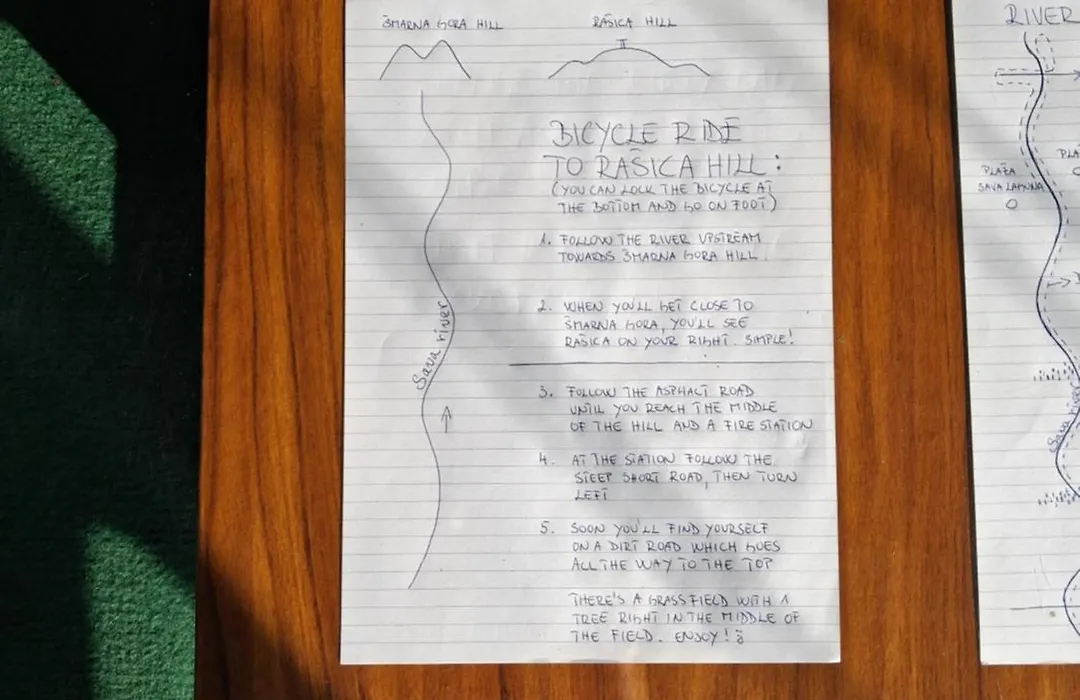 ŠMARNA GORA HILL
RAŠICA HILL
BICYCLE RIDE
TO RAŠICA HILL:
(YOU CAN LOCK THE BICYCLE AT
THE BOTTOM AND GO ON FOOT)
1. FOLLOW THE RIVER UPSTREAM
TOWARDS ŠMARNA GORA HILL
2. WHEN YOU'LL GET CLOSE TO
ŠMARNA GORA, YOU'LL SEE
RAŠICA ON YOUR RIGHT. SIMPLE!
Sava river
3. FOLLOW THE ASPHALT ROAD
UNTIL YOU REACH THE MIDDLE
OF THE HILL AND A FIRE STATION
4. AT THE STATION FOLLOW THE
STEEP SHORT ROAD, THEN TURN
LEFT
5. SOON YOU'LL FIND YOURSELF
ON A DIRT ROAD WHICH GOES
ALL THE WAY TO THE TOP
THERE'S A GRASSFIELD WITH 1
TREE RIGHT IN THE MIDDLE OF
THE FIELD. ENJOY!
RIVER
PLAŽA
SAVA LAGUNA
Sava river